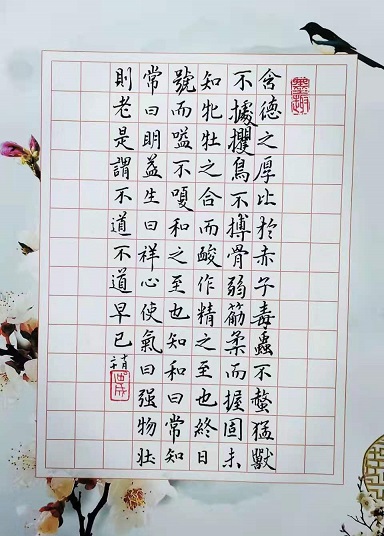 含德之厚比於赤子毒蟲不螫猛獸
不據攫鳥不搏骨弱筋柔而握固未
知牝牡之合而酸作精之至也終日
號而嗌不嗄和之至也知和曰常知
常曰明益生曰祥心使氣曰强物壯
則老是謂不道不道早已